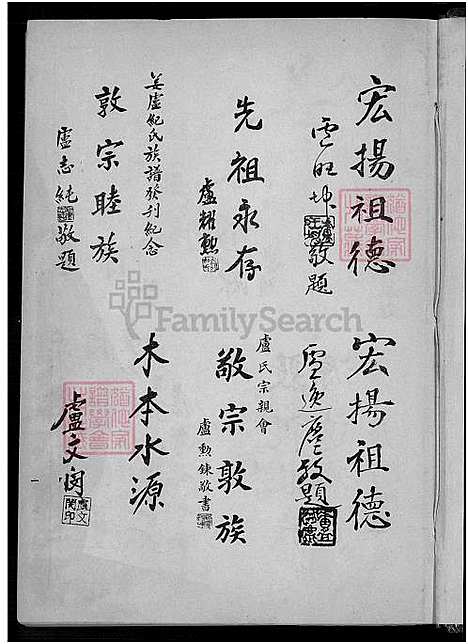 宏揚祖德
盧旺坤敬題
先祖永存
盧耀勲
姜盧紀氏族譜發刊紀念
敦宗睦族
盧志純敬題
宏揚祖德
盧逸塵敬題
盧氏宗親會
敬宗敦族
盧勲錬敬書
木本水源
盧文閔
一
FamilySearch